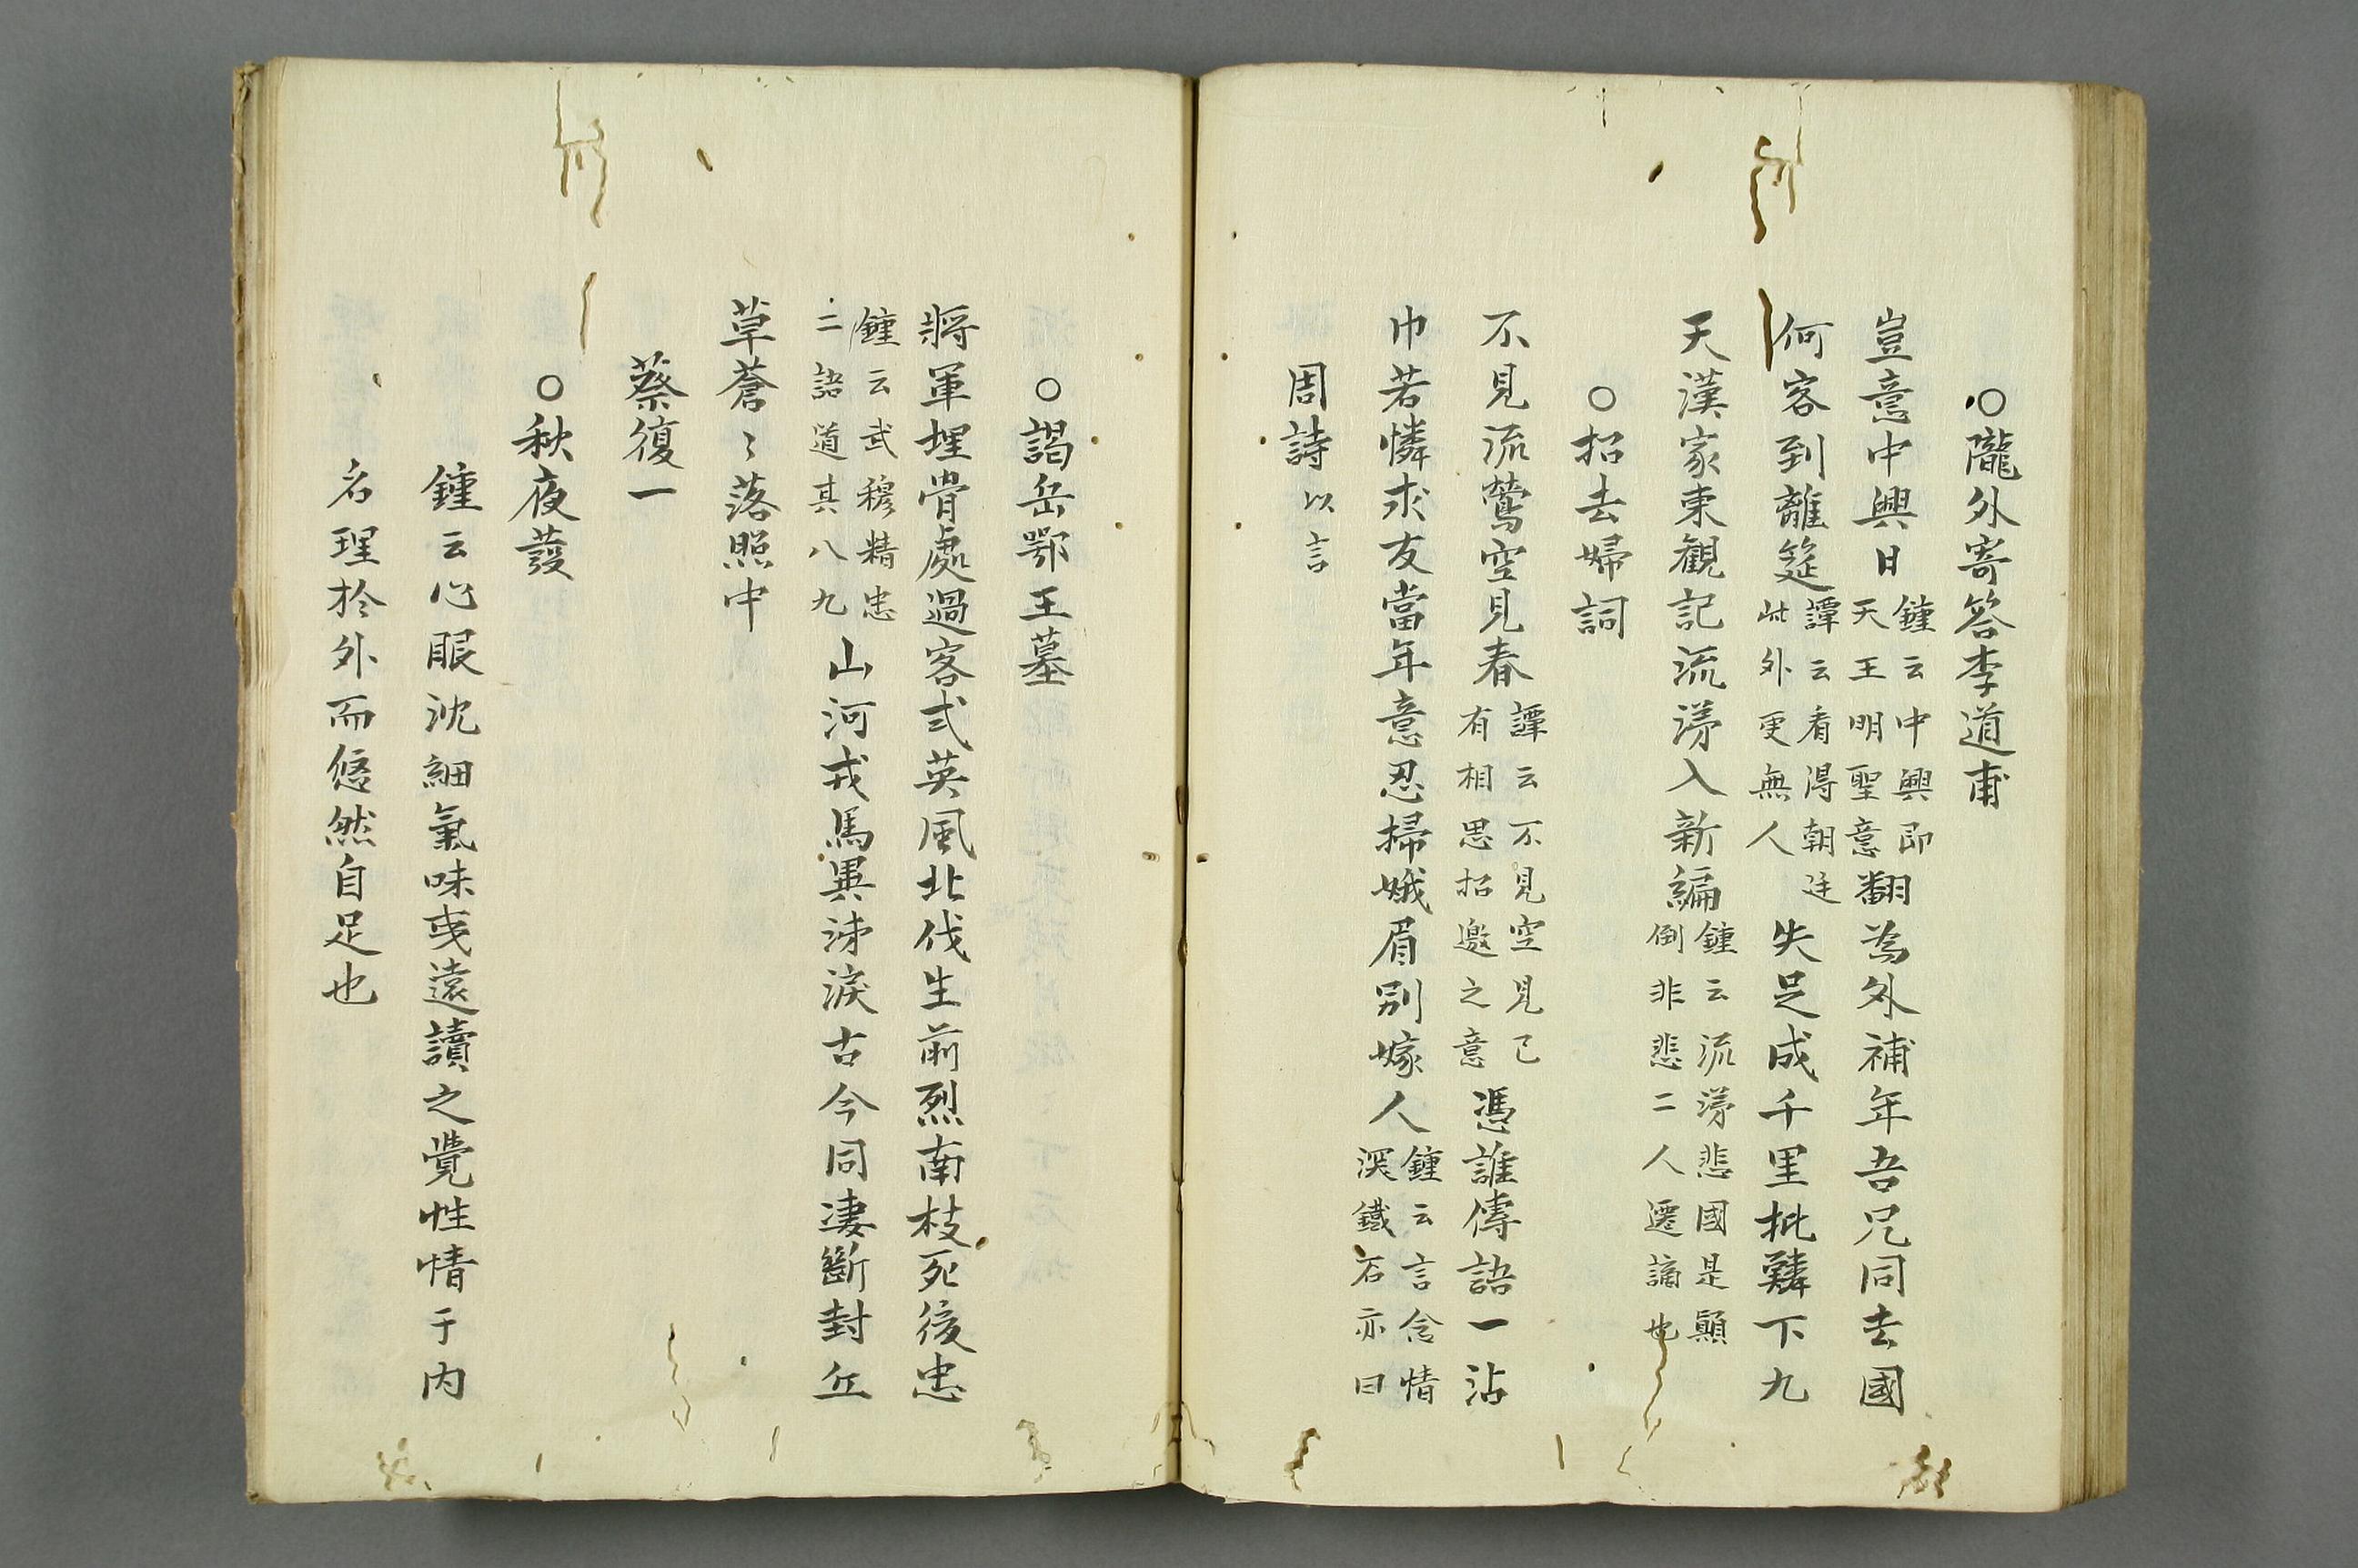 ○隴外寄答李道甫
豈意中興日鍾云中興即天王明聖意翻為外補年吾兄同去國
何客到離筵譚云看得朝廷此外更無人失足成千里批鱗下九
天漢家東観記流涕入新編鍾云流涕悲國是顛倒非悲二人遷謫也
○招去婦詞
不見流鶯空見春譚云不見空見已有相思招邀之意憑誰傳語一沾
巾若憐求友當年意忍掃娥眉別嫁人鍾云言念情深鐵石亦曰
周詩以言
○謁岳鄂王墓
將軍埋骨處過客式英風北伐生前烈南枝死後忠
鍾云武穆精忠二語道其八九山河戎馬異涕淚古今同淒斷封丘
草蒼〻落照中
蔡復一
○秋夜發
鍾云心眼沈細氣味夐遠讀之覺性情于内
名理於外而悠然自足也